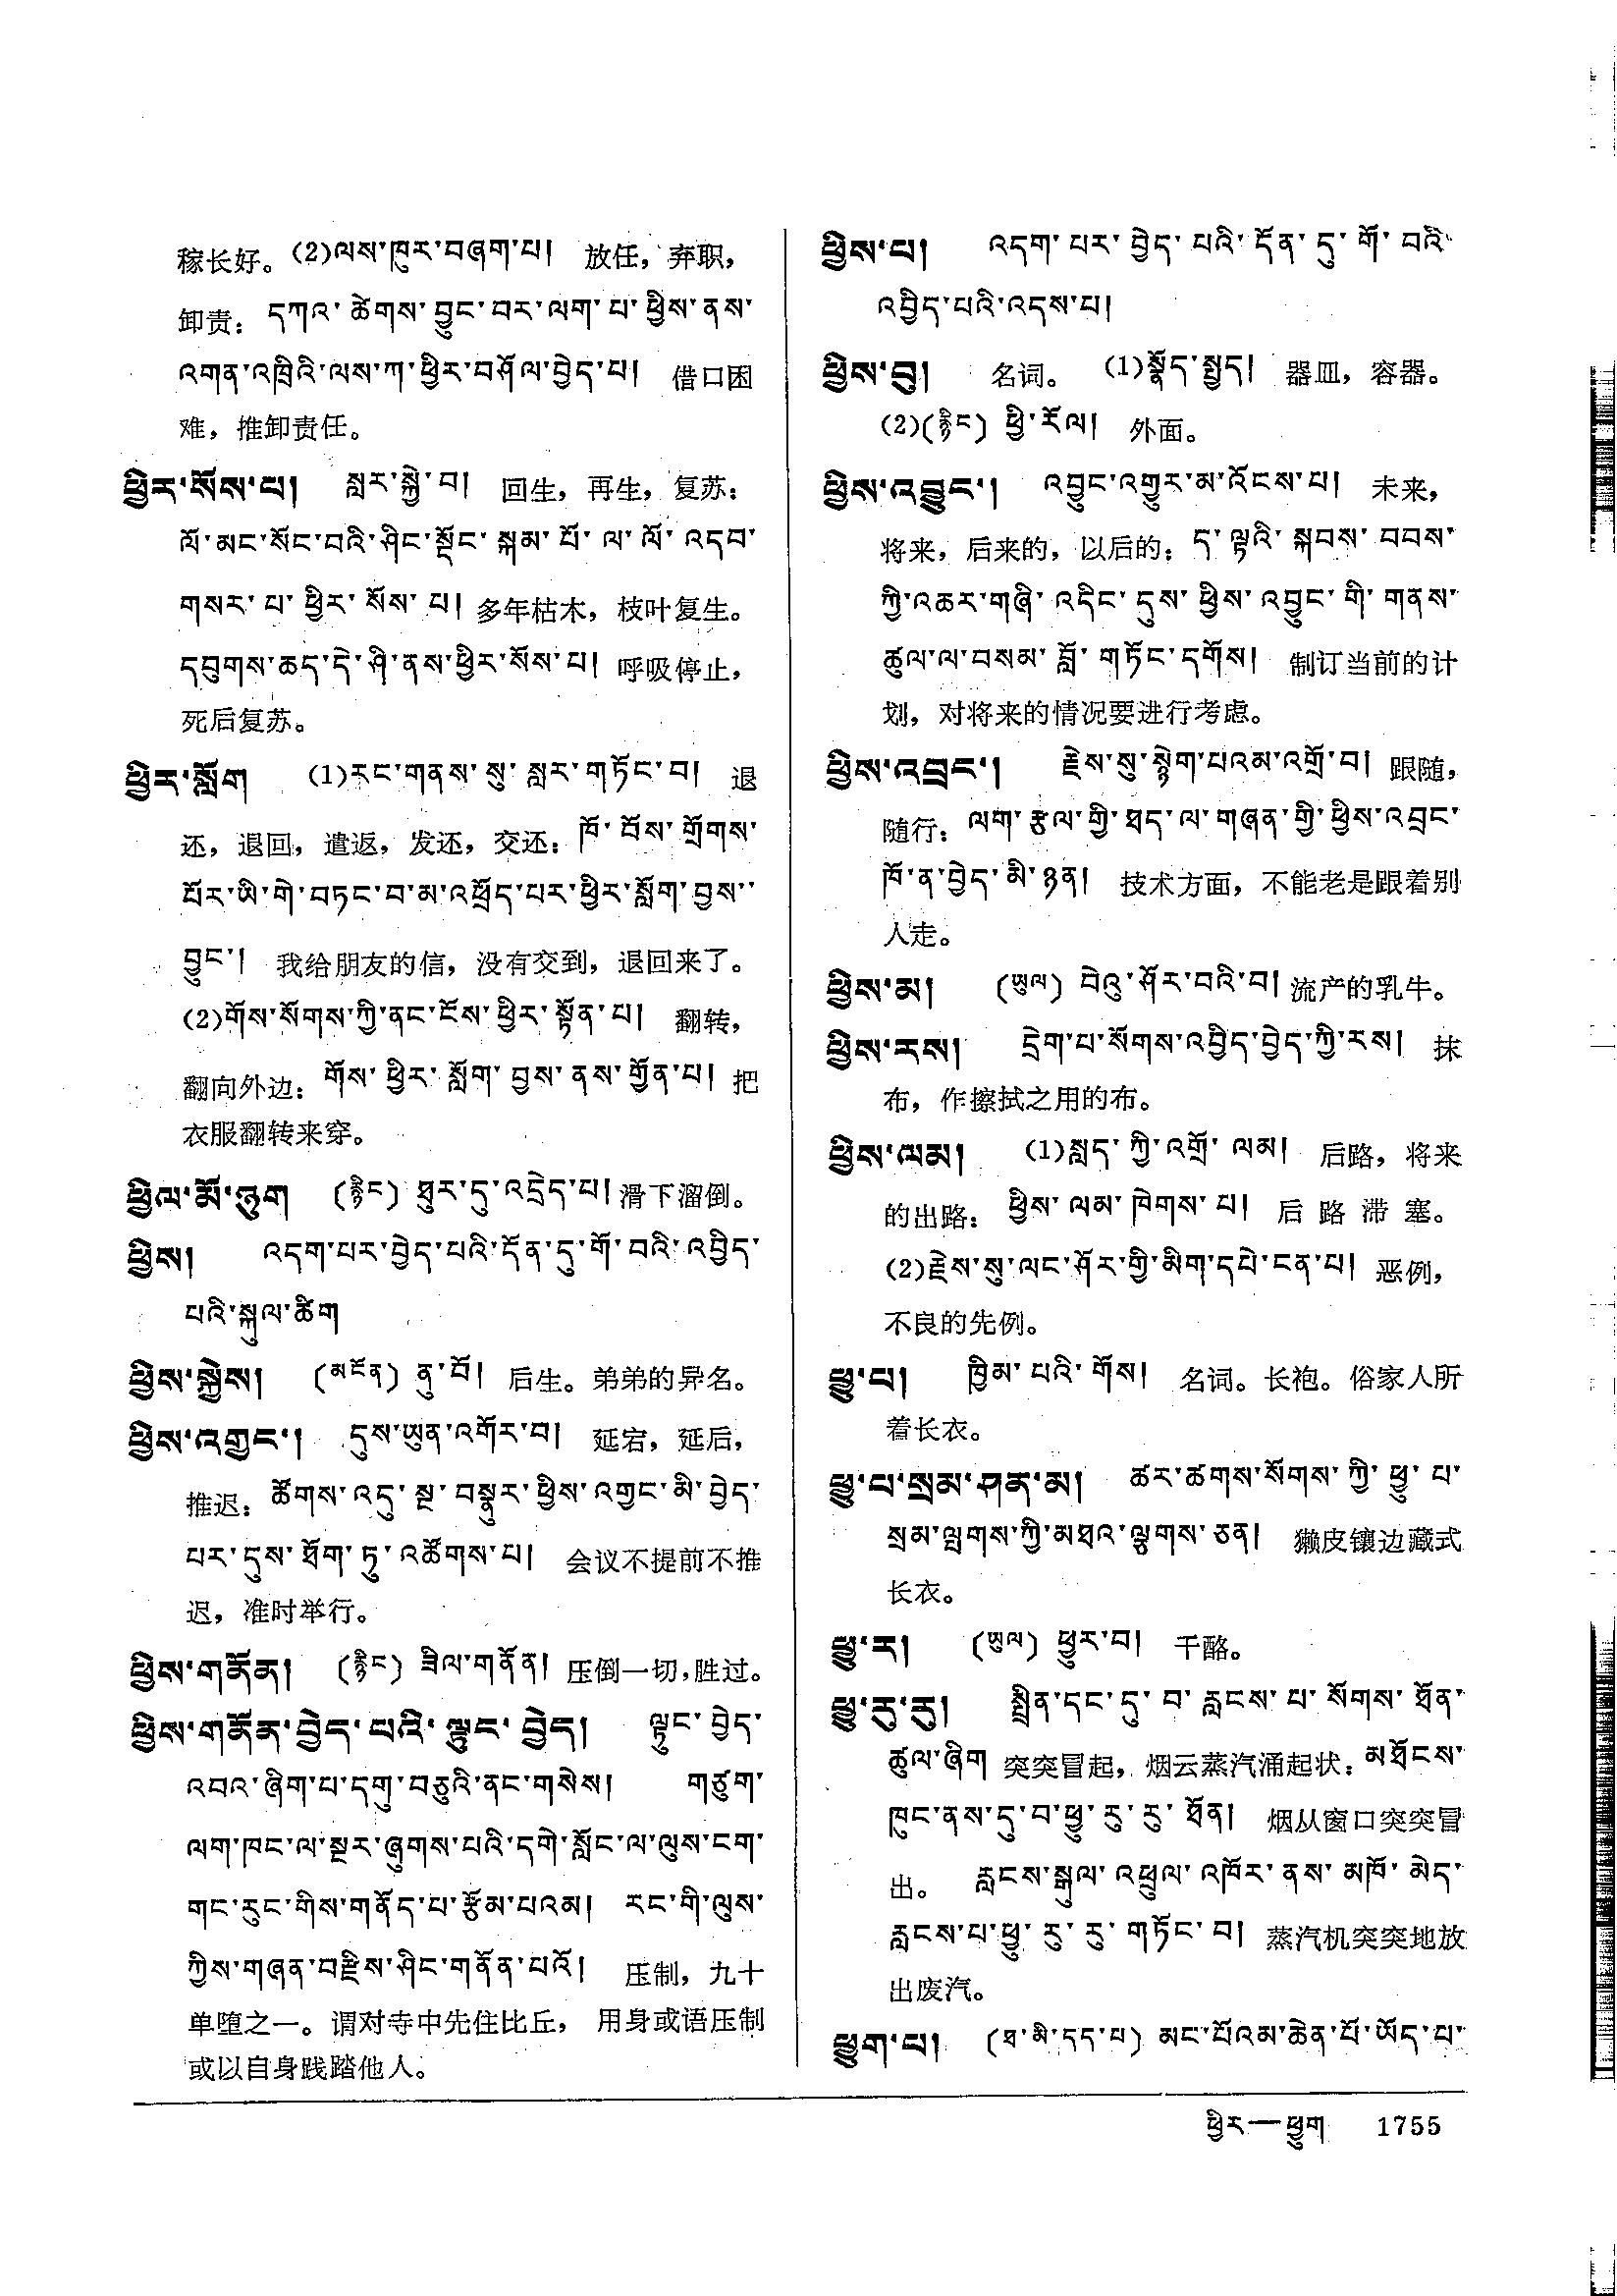 稼长好。(2)ལས་ཁུར་བཞག་པ། 放任，弃职，
卸责：དཀའ་ཚེགས་བྱུང་བར་ལག་པ་ཕྱིས་ནས་
འགན་འཁྲིའི་ལས་ཀ་ཕྱིར་བཤོལ་བྱེད་པ། 借口困
难，推卸责任。
ཕྱིར་སོས་པ། སླར་སྐྱེ་བ། 回生，再生，复苏：
ལོ་མང་སོང་བའི་ཤིང་སྡོང་སྐམ་པོ་ལ་ལོ་འདབ་
གསར་པ་ཕྱིར་སོས་པ། 多年枯木，枝叶复生。
དབུགས་ཆད་དེ་ཤི་ནས་ཕྱིར་སོས་པ། 呼吸停止，
死后复苏。
ཕྱིར་སློག (1)རང་གནས་སུ་སླར་གཏོང་བ། 退
还，退回，遣返，发还，交还：ཁོ་བོས་གྲོགས་
པོར་ཡི་གེ་བཏང་བ་མ་འཕྲོད་པར་ཕྱིར་སློག་བྱས་
བྱུང་། 我给朋友的信，没有交到，退回来了。
(2)གོས་སོགས་ཀྱི་ནང་ངོས་ཕྱིར་སྟོན་པ། 翻转，
翻向外边：གོས་ཕྱིར་སློག་བྱས་ནས་གྱོན་པ། 把
衣服翻转来穿。
ཕྱིལ་མོ་ཉུག (རྙིང) ཐུར་དུ་འདྲེད་པ། 滑下溜倒。
ཕྱིས། འདག་པར་བྱེད་པའི་དོན་དུ་གོ་བའི་འབྱིད་
པའི་སྐུལ་ཚིག
ཕྱིས་སྐྱེས། (མངོན) ནུ་བོ། 后生。弟弟的异名。
ཕྱིས་འགྱང་། དུས་ཡུན་འགོར་བ། 延宕，延后，
推迟：ཚོགས་འདུ་སྔ་བསྣུར་ཕྱིས་འགྱང་མི་བྱེད་
པར་དུས་ཐོག་ཏུ་འཚོགས་པ། 会议不提前不推
迟，准时举行。
ཕྱིས་གནོན། (རྙིང) ཟིལ་གནོན། 压倒一切，胜过。
ཕྱིས་གནོན་བྱེད་པའི་ལྟུང་བྱེད། ལྟུང་བྱེད་
འབའ་ཞིག་པ་དགུ་བཅུའི་ནང་གསེས། གཙུག་
ལག་ཁང་ལ་སྔར་ཞུགས་པའི་དགེ་སློང་ལ་ལུས་ངག་
གང་རུང་གིས་གནོད་པ་རྩོམ་པའམ། རང་གི་ལུས་
ཀྱིས་གཞན་བརྫིས་ཤིང་གནོན་པའོ། 压制，九十
单堕之一。谓对寺中先住比丘，用身或语压制
或以自身践踏他人。
ཕྱིས་པ། འདག་པར་བྱེད་པའི་དོན་དུ་གོ་བའི་
འབྱིད་པའི་འདས་པ།
ཕྱིས་བུ། 名词。 (1)སྣོད་སྤྱད། 器皿，容器。
(2)(རྙིང) ཕྱི་རོལ། 外面。
ཕྱིས་འབྱུང་། འབྱུང་འགྱུར་མ་འོངས་པ། 未来，
将来，后来的，以后的：ད་ལྟའི་སྐབས་བབས་
ཀྱི་འཆར་གཞི་འདིང་དུས་ཕྱིས་འབྱུང་གི་གནས་
ཚུལ་ལ་བསམ་བློ་གཏོང་དགོས། 制订当前的计
划，对将来的情况要进行考虑。
ཕྱིས་འབྲང་། རྗེས་སུ་སྙེག་པའམ་འགྲོ་བ། 跟随，
随行：ལག་རྩལ་གྱི་ཐད་ལ་གཞན་གྱི་ཕྱིས་འབྲང་
ཁོ་ན་བྱེད་མི་ཉན། 技术方面，不能老是跟着别
人走。
ཕྱིས་མ། (ཡུལ) བེའུ་ཤོར་བའི་བ། 流产的乳牛。
ཕྱིས་རས། དྲེག་པ་སོགས་འབྱིད་བྱེད་ཀྱི་རས། 抹
布，作擦拭之用的布。
ཕྱིས་ལམ། (1)སླད་ཀྱི་འགྲོ་ལམ། 后路，将来
的出路：ཕྱིས་ལམ་ཁེགས་པ། 后路滞塞。
(2)རྗེས་སུ་ལང་ཤོར་གྱི་མིག་དཔེ་ངན་པ། 恶例，
不良的先例。
ཕྱུ་པ། ཁྱིམ་པའི་གོས། 名词。长袍。俗家人所
着长衣。
ཕྱུ་པ་སྲམ་ཤན་མ། ཚར་ཚགས་སོགས་ཀྱི་ཕྱུ་པ་
སྲམ་ལྤགས་ཀྱི་མཐའ་ལྕགས་ཅན། 獭皮镶边藏式
长衣。
ཕྱུ་ར། (ཡུལ) ཕྱུར་བ། 干酪。
ཕྱུ་རུ་རུ། སྤྲིན་དང་དུ་བ་རླངས་པ་སོགས་ཐོན་
ཚུལ་ཞིག 突突冒起，烟云蒸汽涌起状：མཐོངས་
ཁུང་ནས་དུ་བ་ཕྱུ་རུ་རུ་ཐོན། 烟从窗口突突冒
出。 རླངས་སྒུལ་འཕྲུལ་འཁོར་ནས་མཁོ་མེད་
རླངས་པ་ཕྱུ་རུ་རུ་གཏོང་བ། 蒸汽机突突地放
出废汽。
ཕྱུག་པ། (ཐ་མི་དད་པ) མང་པོའམ་ཆེན་པོ་ཡོད་པ་
ཕྱིར—ཕྱུག 1755